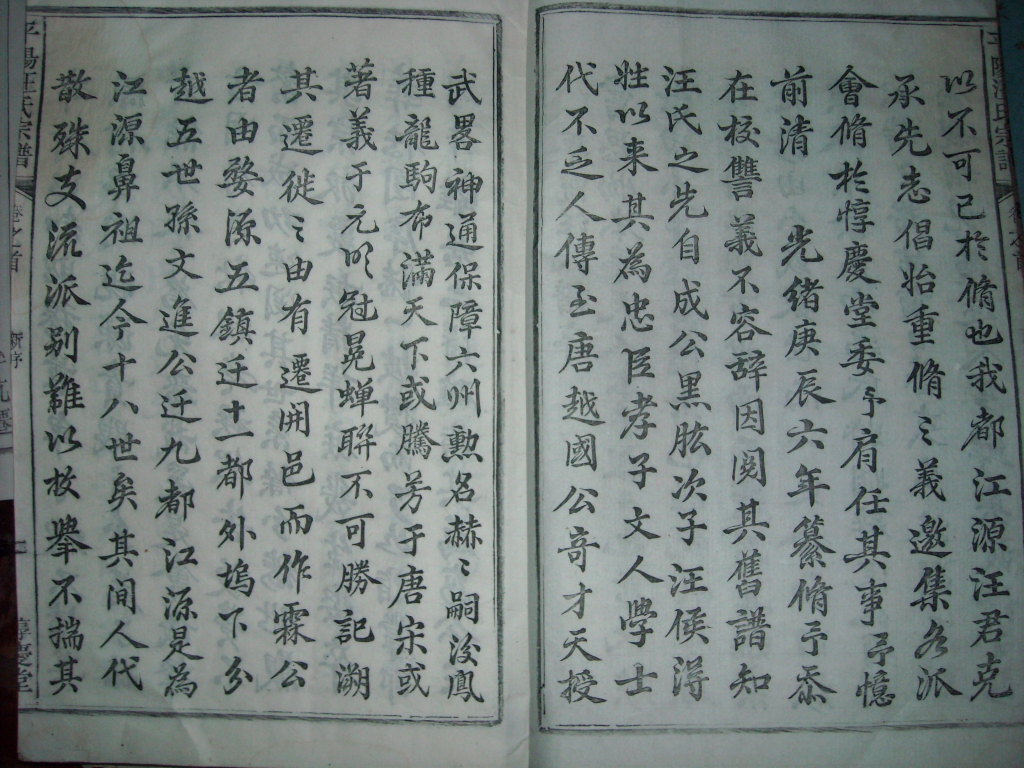 以不可已於脩也我都江源汪君克
承先志倡始重脩〻義邀集各派
會脩於惇慶堂委予肩任其事予憶
前清光緒庚辰六年纂脩予忝
在校讐義不容辞因閲其舊譜知
汪氏之先自成公黑肱次子汪侯淂
姓以来其為忠臣孝子文人學士
代不乏人傳至唐越國公竒才天授
武畧神通保障六州勳名赫〻嗣後鳳
種龍駒布滿天下或騰芳于唐宋或
著義于元明冠冕蝉聨不可勝記溯
其遷徙〻由有遷開邑而作霖公
者由婺源五鎮迁十一都外塢下分
越五世孫文進公迁九都江源是為
江源鼻祖迄今十八世矣其間人代
散殊支流派别難以枚舉不揣其
平陽汪氏宗譜
卷之首
新序
惇慶堂